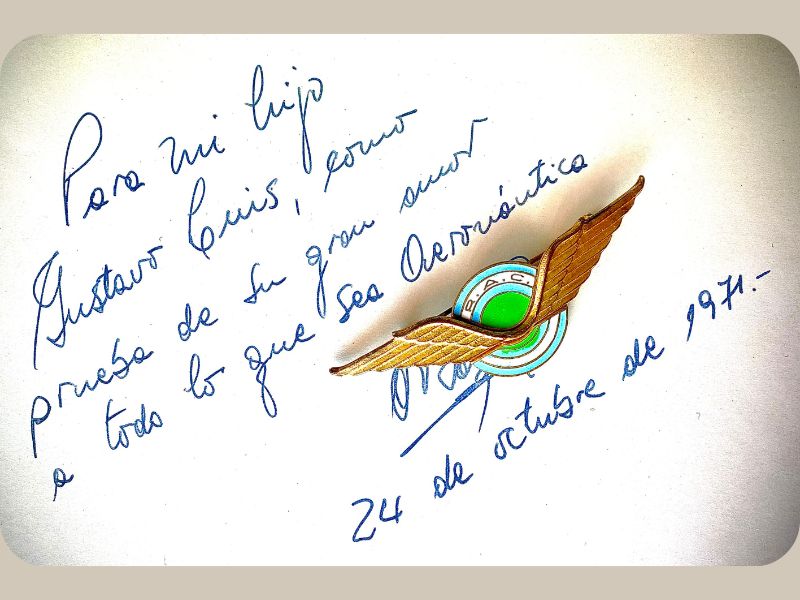 Para mi hijo
Gustavo Luis, como
prueba de su gran amor
a todo lo que sea Aeronáutica
R.A.C.
24 de octubre de 1971.-